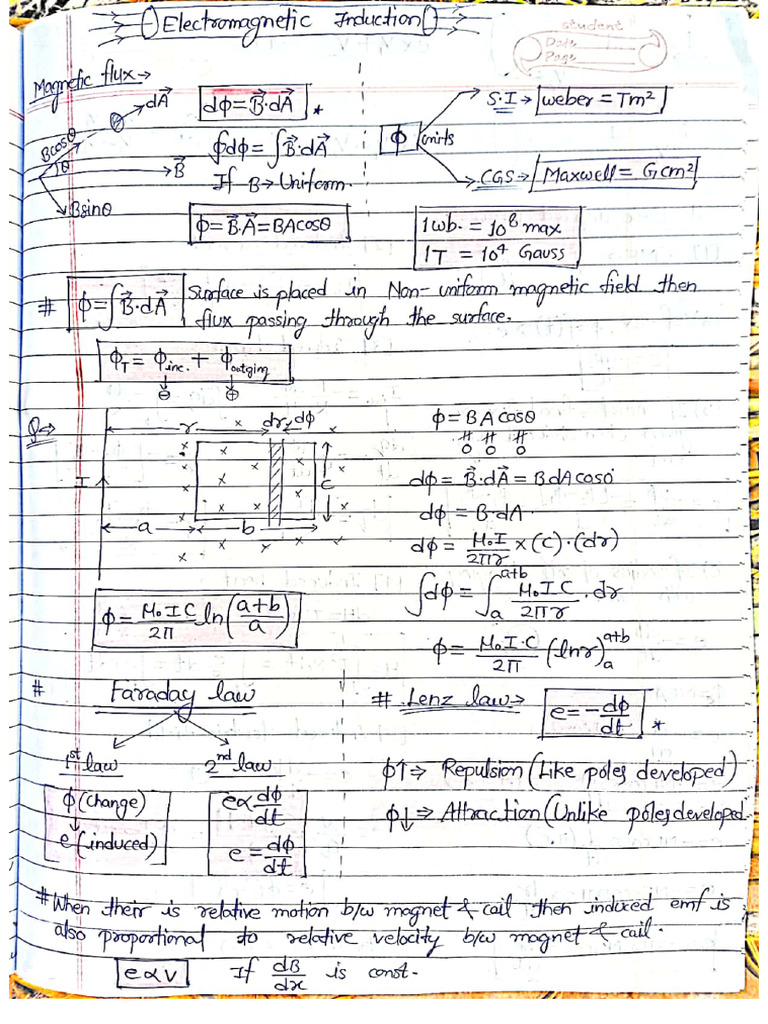 Electromagnetic Induction
student
Date
Page
Magnetic flux→
dA⃗
Bcosθ
θ
B⃗
Bsinθ
dϕ = B⃗·dA⃗ *
∮dϕ = ∫B⃗·dA⃗
If B→ Uniform.
ϕ = B⃗·A⃗ = BAcosθ
ϕ units
S.I → weber = Tm²
CGS → Maxwell = Gcm²
1wb. = 10⁸ max
1T = 10⁴ Gauss
# ϕ = ∫B⃗·dA⃗ Surface is placed in Non-uniform magnetic field then
flux passing through the surface.
ϕ_T = ϕ_inc. + ϕ_outging
⊖ ⊕
Q→
r dr, dϕ
I
C
a b
ϕ = BAcosθ
0 0 0
dϕ = B⃗·dA⃗ = BdAcos0
dϕ = B·dA
dϕ = M₀I/2πr × (C)·(dr)
∫dϕ = ∫ₐᵃ⁺ᵇ M₀IC/2πr · dr
ϕ = M₀IC/2π ln(a+b/a)
ϕ = M₀I·C/2π (lnr)ₐᵃ⁺ᵇ
# Faraday law
1st law
ϕ(change)
↓
e(induced)
2nd law
e∝dϕ/dt
e = dϕ/dt
# Lenz law→ e = -dϕ/dt *
ϕ↑ ⇒ Repulsion (Like poles developed)
ϕ↓ ⇒ Attraction (Unlike poles developed
# When their is relative motion b/w magnet & cail then induced emf is
also proportional to relative velocity b/w magnet & cail.
e∝v If dB/dx is const.